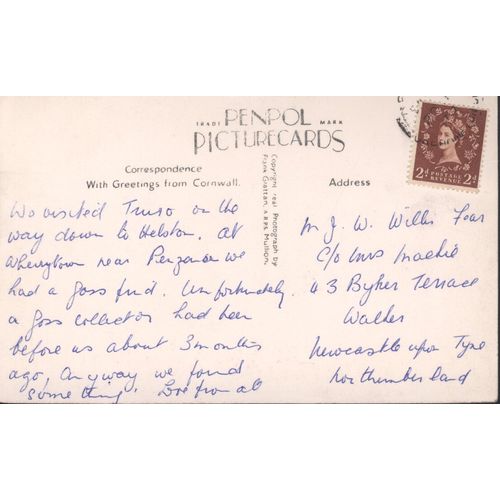 TRADE PENPOL MARK
PICTURECARDS
Correspondence
With Greetings from Cornwall.
Address
Copyright real Photograph by
Frank Grattan, A.R.P.S. Mullion.
POSTAGE REVENUE
2D 2D
We visited Truro on the
way down to Helston. At
Wherrytown near Penzance we
had a Goss find. Unfortunately
a Goss collector had been
before us about 3 months
ago, Anyway we found
something. Love from all
Mr J. W. Willis Fear
C/o Mrs Mackie
43 Byker Terrace
Walker
Newcastle upon Tyne
Northumberland